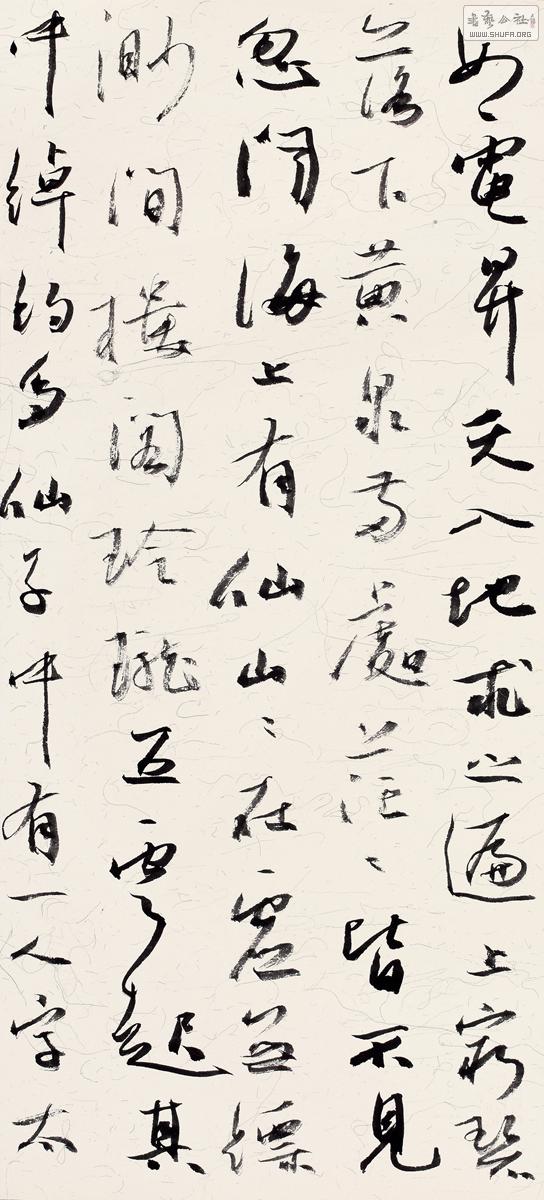 如電昇天入地求之遍上窮碧
落下黄泉兩處茫〻皆不見
忽聞海上有仙山〻在虛無縹
渺間樓閣玲瓏五雲起其
中綽約多仙子中有一人字太
書藝公社
WWW.SHUFA.ORG